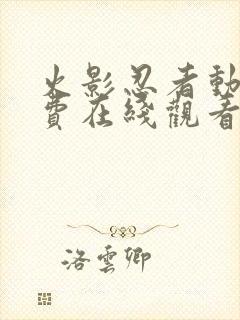 火影忍者動
費在綫觀看
洛雲卿